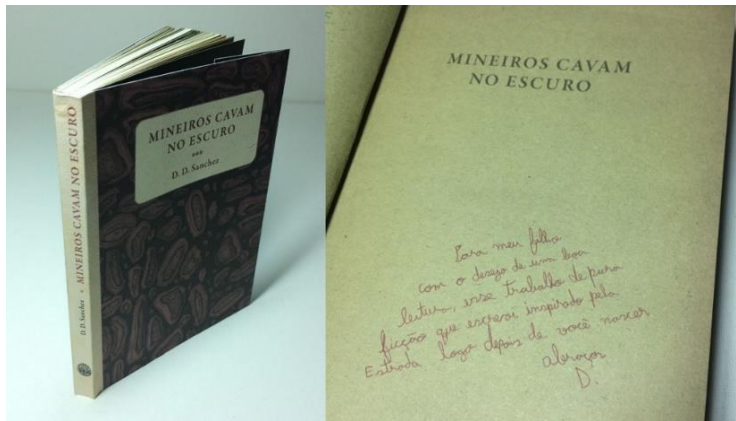 D. D. Sanchez • MINEIROS CAVAM NO ESCURO
MINEIROS CAVAM
NO ESCURO
D. D. Sanchez
MINEIROS CAVAM
NO ESCURO
Para meu filho
com o desejo de uma boa
leitura, esse trabalho de pura
ficção que escrevi inspirado pela
Estrada logo depois de você nascer
abraços
D.